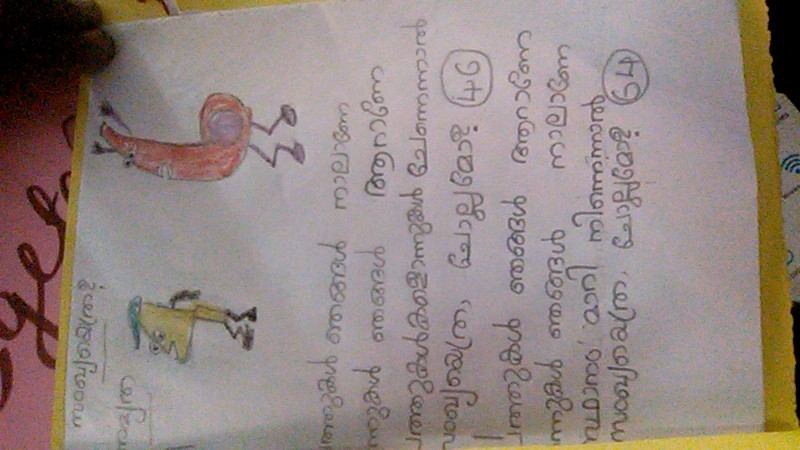 സംഖ്യയെത്ര?
പത്തുകൾ ഞങ്ങൾ നാലാണേ
ന്നുകൾ ഞങ്ങൾ ആറാണേ
പത്തുകൾകളൊന്നുകൾ ചേന്നെന്നാൽ
സംഖ്യയെത്ര, ചൊല്ലുമോ? 46
പത്തുകൾ ഞങ്ങൾ ആറാണേ
ന്നുകൾ ഞങ്ങൾ നാലാണേ
സ്ഥാനം മാറി നിന്നെന്നാൽ
സംഖ്യയെത്ര, ചൊല്ലുമോ? 64